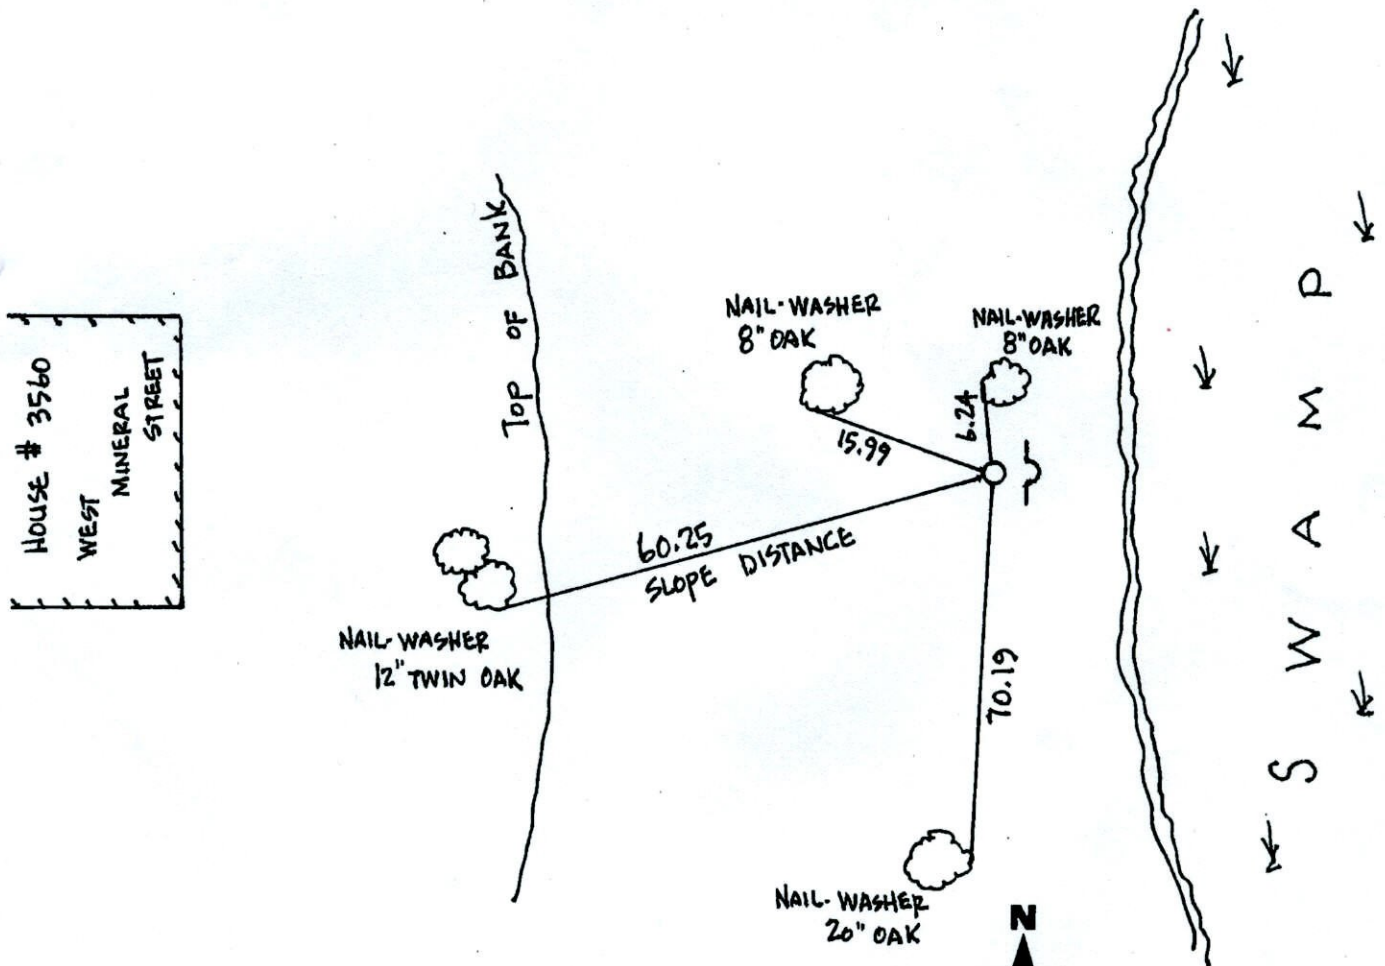 HOUSE # 3560
WEST
MINERAL
STREET
TOP OF BANK
NAIL-WASHER
8" OAK
NAIL-WASHER
8" OAK
15.99
6.24
60.25
SLOPE DISTANCE
NAIL-WASHER
12" TWIN OAK
70.19
NAIL-WASHER
20" OAK
N
SWAMP